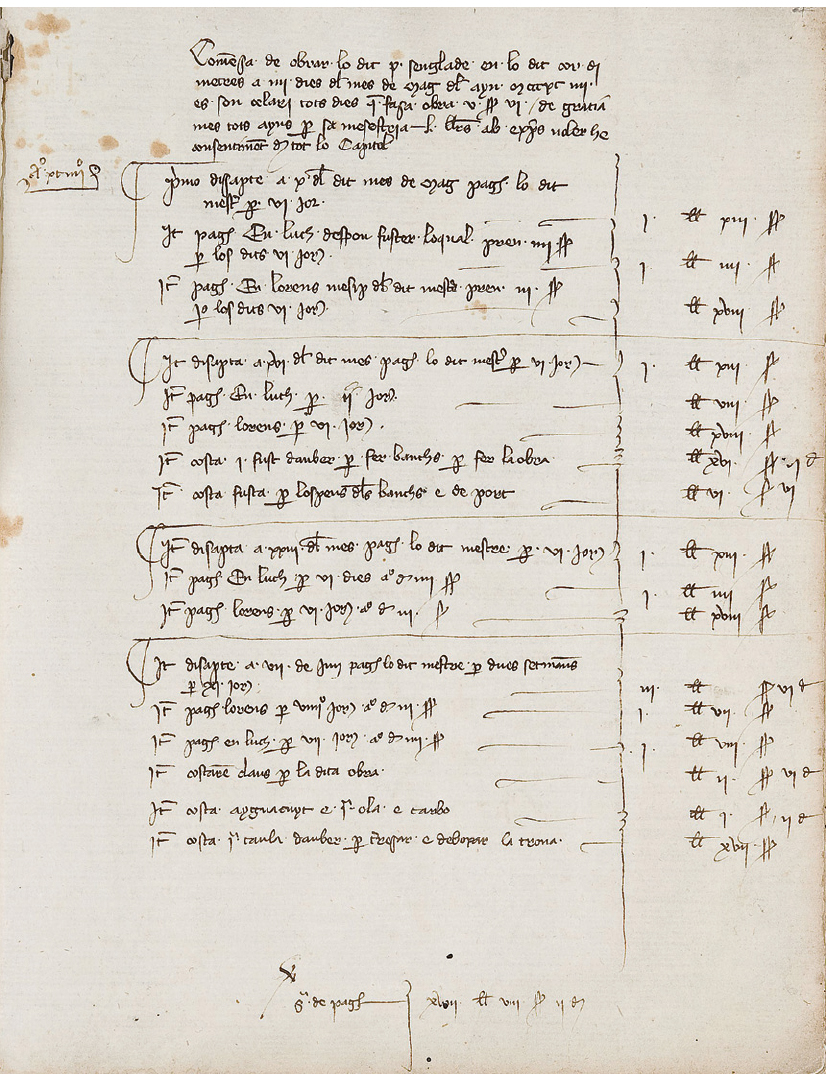 Comensa de obrar lo dit p. senglade en lo dit cor di
mecres a iiii dies dl mes de Mag dl ayn Mcccxc iiii
es son celari tots dies q fassa obra v ss vi de gracia
mes tots ayns p sa mesestria L llrs ab exprs
consentiment de tot lo Capitol
Primo dissapte a x dl dit mes de Mag pagh lo dit
mestr p vi jor i ll xiii ss
It pagh En luch despou fuster loqual pren iiii ss
p los dits vi jorn i ll iiii ss
It pagh En lorens mesip dl dit mestr pren iii ss
p los dits vi jorn ll xviii ss
It disapta a xvi dl dit mes pagh lo dit mestr p vi jorn i ll xiii ss
It pagh En luch p ii jorn ll viii ss
It pagh lorens p vi jorn ll xviii ss
It costa i fust dauber p fer banchs p fer la obra ll xvi ss ii d
It costa fusta p lospeus dls banchs e de port ll vi ss vi
It disapta a xxiii dl mes pagh lo dit mestre p vi jorn i ll xiii ss
It pagh En luch p vi dies a iiii ss i ll iiii ss
It pagh lorens p vi jorn a iii ss ll xviii ss
It disapte a vii de juny pagh lo dit mestre p dues setmanes
p xi jorn iii ll ss vi d
It pagh lorens p viiii jorn a iii ss i ll vii ss
It pagh en luch p vii jorn a iiii ss i ll viii ss
It costaren claus p la dita obra ll ii ss vi d
It costa ayguacuyt e i ola e carbo ll i ss ii d
It costa i taula dauber p cresar e deborar la trona ll xvii ss
Sa de pagh xvii ll viii ss ii d